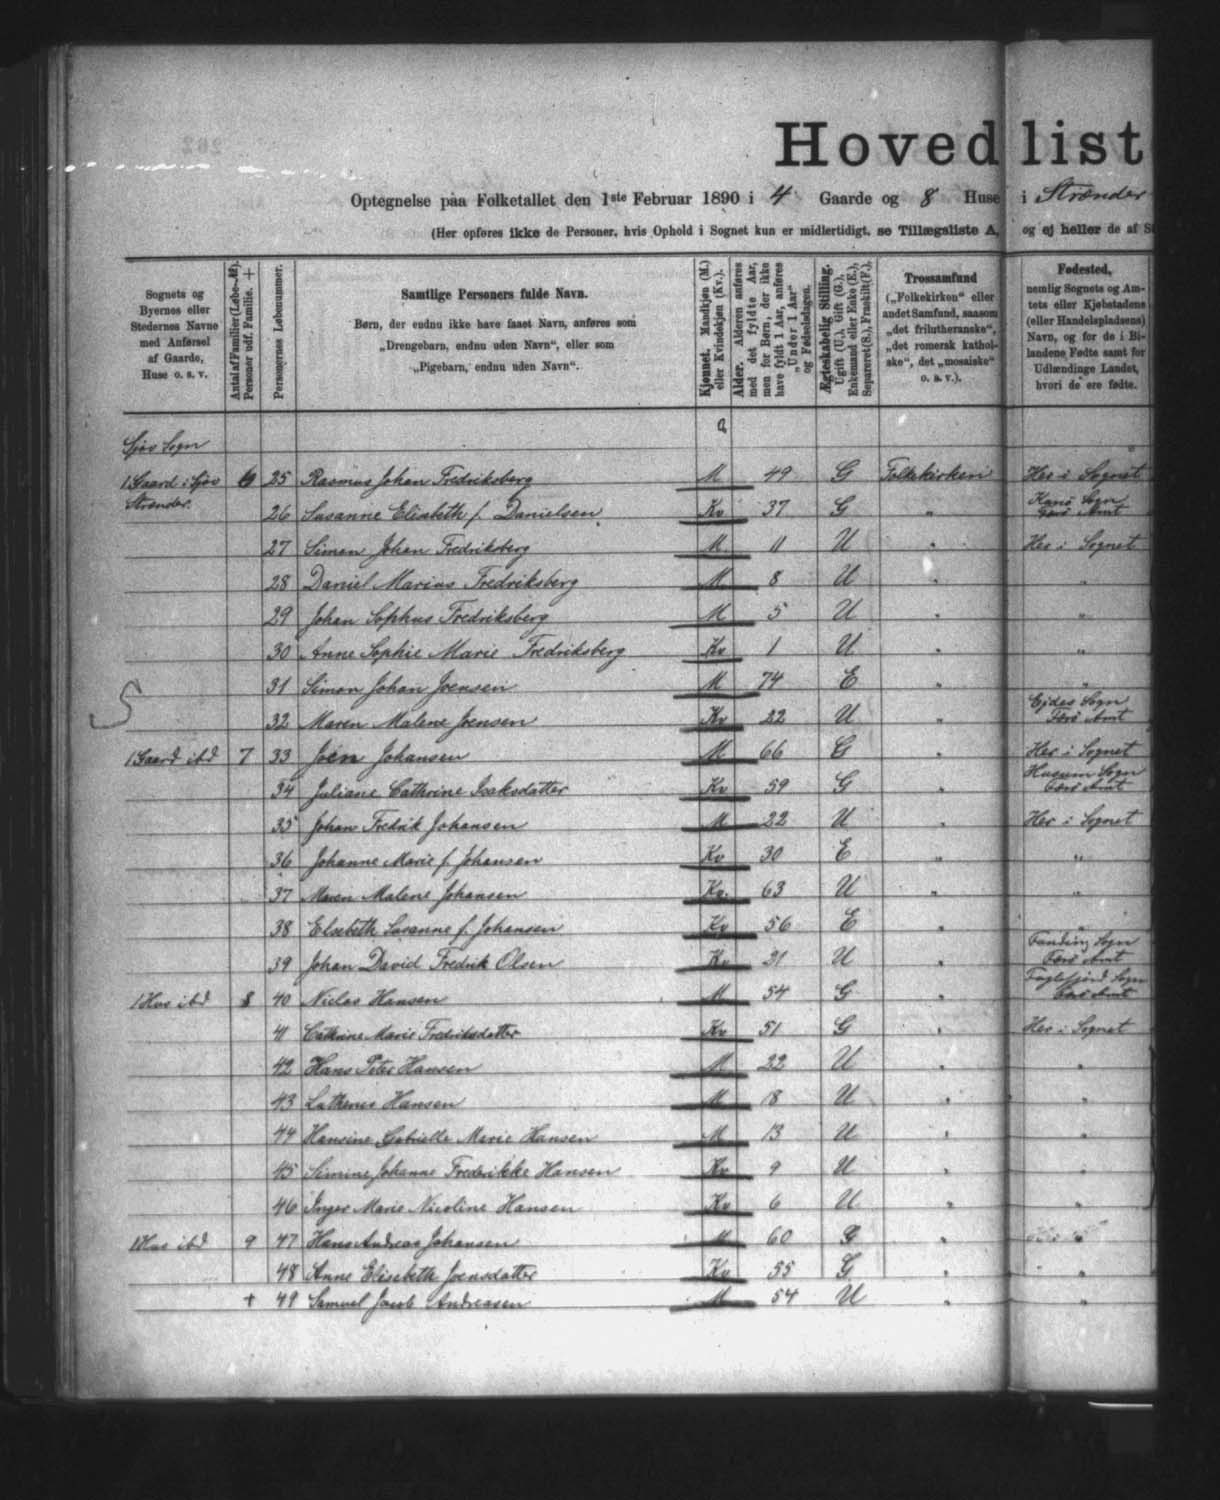 Hovedlist
Optegnelse paa Folketallet den 1ste Februar 1890 i 4 Gaarde og 8 Huse i Strønder
(Her opføres ikke de Personer, hvis Ophold i Sognet kun er midlertidigt, se Tillægsliste A, og ej heller de af S
Sognets og Byernes eller Stedernes Navne med Anførsel af Gaarde, Huse o. s. v.
Antal af Familier (Løbe-№). Personer udf. Familie. +
Personernes Løbenummer.
Samtlige Personers fulde Navn.
Børn, der endnu ikke have faaet Navn, anføres som
„Drengebarn, endnu uden Navn“, eller som
„Pigebarn, endnu uden Navn“.
Kjønnet. Mandkjøn (M.) eller Kvindekjøn (Kv.).
Alder. Alderen anføres med det fyldte Aar, men for Børn, der ikke have fyldt 1 Aar, anføres „Under 1 Aar“ og Fødselsdagen.
Ægteskabelig Stilling. Ugift (U.), Gift (G.), Enkemand eller Enke (E.), Separeret (S.), Fraskilt (F.),
Trossamfund
(„Folkekirken“ eller andet Samfund, saasom „det frilutheranske“, „det romersk katholske“, det „mosaiske“ o. s. v.).
Fødested,
nemlig Sognets og Amtets eller Kjøbstadens (eller Handelspladsens) Navn, og for de i Bilandene Fødte samt for Udlændinge Landet, hvori de ere fødte.
Sjov Sogn
1 Gaard i Sjov 6 25 Rasmus Johan Fredriksberg M 49 G Folkekirken Her i Sognet
Strønder. 26 Susanne Elisabeth f. Danielsen Kv 37 G " Kunø Sogn Færø Amt
27 Simon Johan Fredriksberg M. 11 U " Her i Sognet
28 Daniel Marius Fredriksberg M 8 U " "
29 Johan Sophus Fredriksberg M 5 U " "
30 Anne Sophie Marie Fredriksberg Kv 1 U " "
31 Simon Johan Joensen M 74 E " "
32 Maren Malene Joensen Kv 22 U " Ejdes Sogn Færø Amt
1 Gaard ibd 7 33 Joen Johansen M 66 G " Her i Sognet
34 Juliane Cathrine Isaksdatter Kv 59 G " Husum Sogn Færø Amt
35 Johan Fredrik Johansen M 22 U " Her i Sognet
36 Johanne Marie f. Johansen Kv 30 E " "
37 Maren Malene Johansen Kv. 63 U " "
38 Elsebeth Susanne f. Johansen Kv 56 E " "
39 Johan David Fredrik Olsen Kv 31 U " Funding Sogn Færø Amt
1 Hus ibd 8 40 Niclas Hansen M 54 G " Fuglefjord Sogn Færø Amt
41 Cathrine Marie Fredriksdatter Kv 51 G " Her i Sognet
42 Hans Peter Hansen M 22 U " "
43 Hansen M 18 U " "
44 Hansine Gabrielle Marie Hansen M 13 U " "
45 Simine Johanne Fredrikke Hansen Kv 9 U " "
46 Inger Marie Nicoline Hansen Kv 6 U " "
1 Hus ibd 9 47 Hans Andreas Johansen M 60 G " "
48 Anne Elisebeth Joensdatter Kv 55 G " "
+ 49 Samuel Jacob Andreasen M 54 U " "